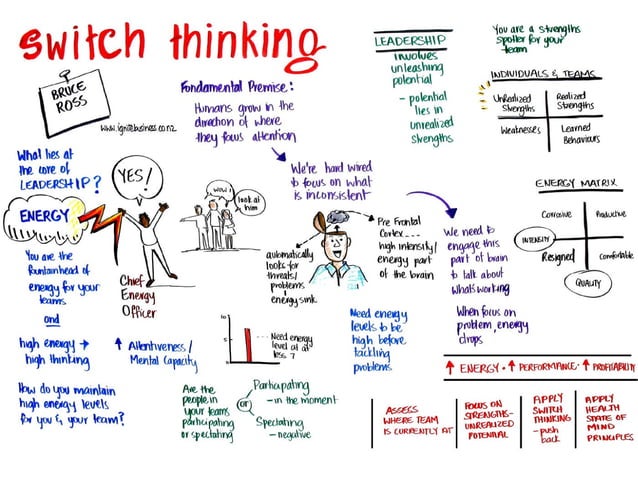 Switch thinking
BRUCE
ROSS
www.ignitebusiness.co.nz
What lies at
the core of
LEADERSHIP?
ENERGY
YES!
You are the
fountainhead of
energy for your
teams
and
high energy →
high thinking
How do you maintain
high energy levels
for you & your team?
Chief
Energy
Officer
↑ Attentiveness /
Mental Capacity
Fondamental Premise:
Humans grow in the
direction of where
they focus attention
We're hard wired
to focus on what
is inconsistent
WOW!
look at
him
automatically
looks for
threats/
problems
energy sink
Pre Frontal
Cortex...
high intensity/
energy part
of the brain
10
5
Need energy
level at at
less 7
Need energy
levels to be
high before
tackling
problems
Are the
people in
your teams
participating
or spectating
or
Participating
- in the moment
Spectating
- negative
LEADERSHIP
involves
unleashing
potential
- potential
lies in
unrealized
strengths
You are a strengths
spotter for your
team
INDIVIDUALS & TEAMS
UnRealized
Strengths
Realized
Strengths
Weaknesses
Learned
Behaviours
ENERGY MATRIX
Corrosive
Productive
INTENSITY
Resigned
Comfortable
QUALITY
We need to
engage this
part of brain
to talk about
what's working
When focus on
problem, energy
drops
↑ ENERGY · ↑ PERFORMANCE · ↑ PROFITABILITY
ASSESS
WHERE TEAM
IS CURRENTLY AT
FOCUS ON
STRENGTHS-
UNREALIZED
POTENTIAL
APPLY
SWITCH
THINKING
- push
back
APPLY
HEALTH
STATE OF
MIND
PRINCIPLES